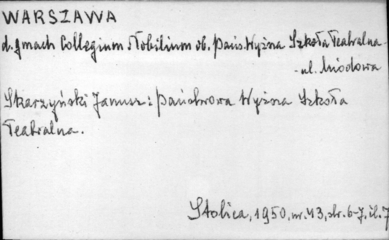 WARSZAWA
d. gmach Collegium Nobilium ob. Państ. Wyższa Szkoła Teatralna
- ul. Miodowa
Skarzyński Janusz: Państwowa Wyższa Szkoła
Teatralna.
Stolica, 1950, nr. 43, str. 6-7, il. 7